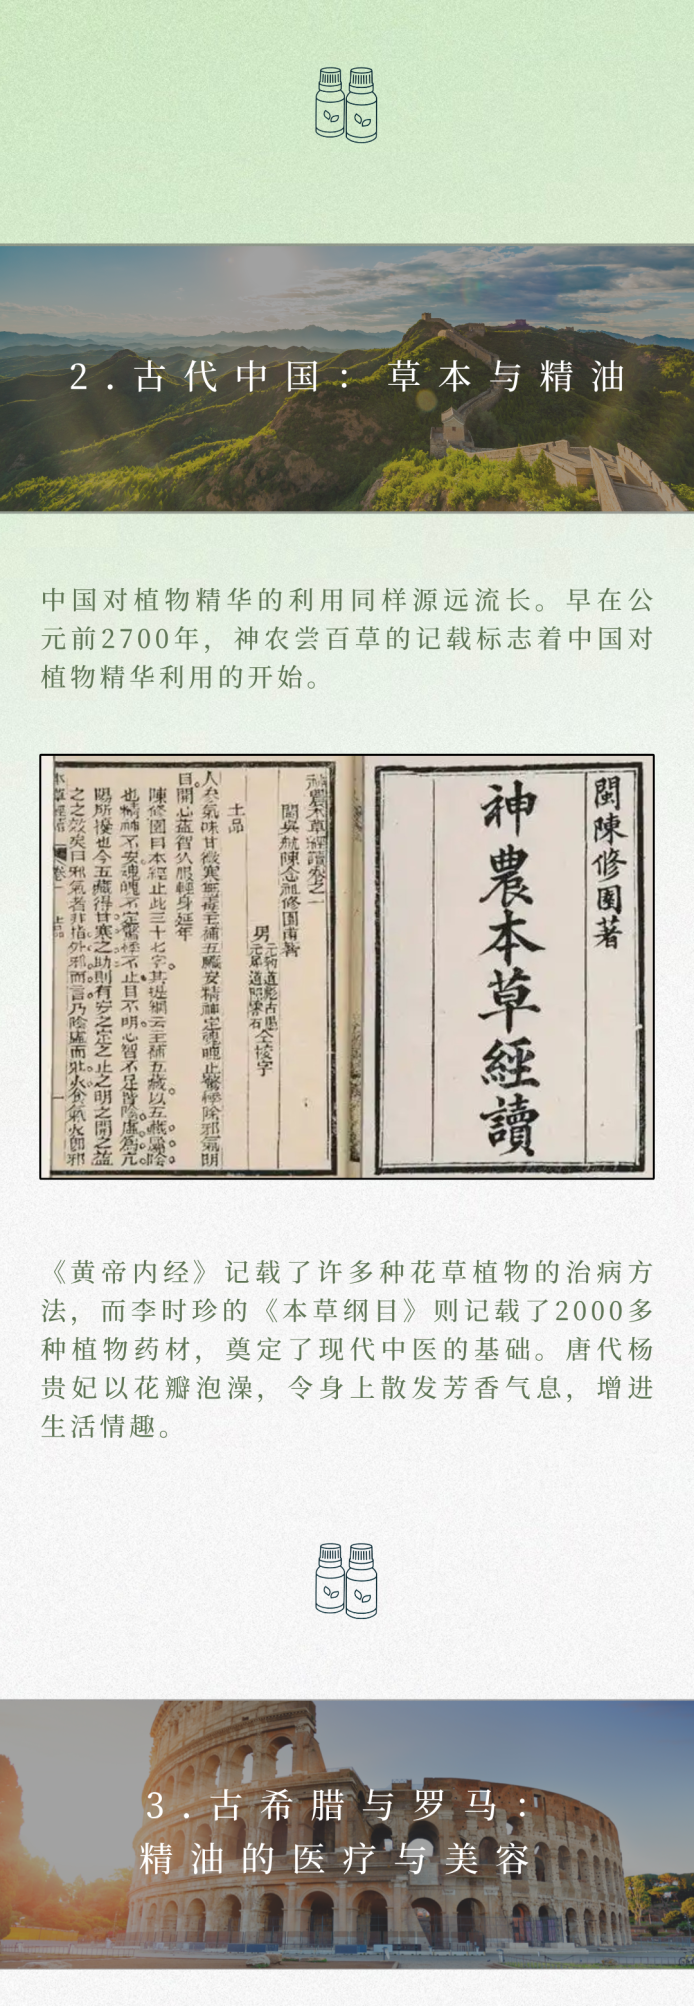 2.古代中国：草本与精油
中国对植物精华的利用同样源远流长。早在公
元前2700年，神农尝百草的记载标志着中国对
植物精华利用的开始。
閩陳修園著
神農本草經讀
神農本草經讀卷之一
閩吳航陳念祖修園甫著
男
元豹道彪古愚
元犀道照靈石
仝挍字
上品
人參氣味甘微寒無毒主補五臟安精神定魂魄止驚悸除邪氣明
目開心益智久服輕身延年
陳修園曰本經止此三十七字其提綱云主補五藏以五藏屬陰
也精神不安魂魄不定驚悸不止目不明心智不足皆陰虛為亢
陽所擾也今五藏得甘寒之助則有安之定之止之明之開之益
之之效矣曰邪氣者非指外邪而言乃陰虛而壯火食氣火即邪
《黄帝内经》记载了许多种花草植物的治病方
法，而李时珍的《本草纲目》则记载了2000多
种植物药材，奠定了现代中医的基础。唐代杨
贵妃以花瓣泡澡，令身上散发芳香气息，增进
生活情趣。
3.古希腊与罗马：
精油的医疗与美容